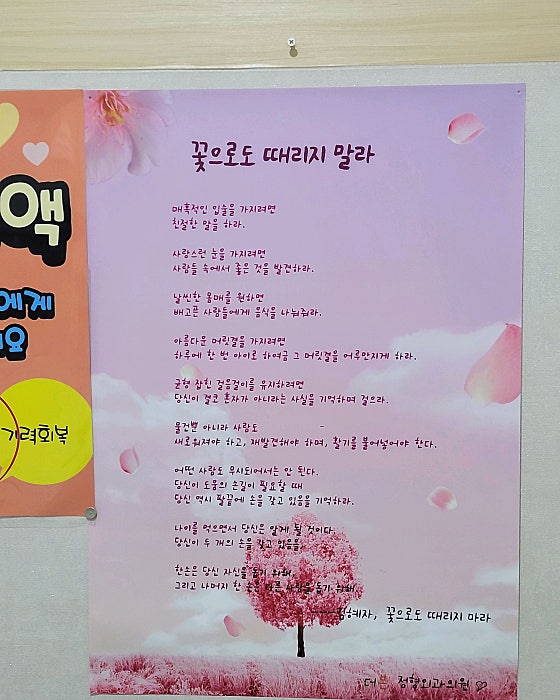 액
에게
요
기력회복
꽃으로도 때리지 말라
매혹적인 입술을 가지려면
친절한 말을 하라.
사랑스런 눈을 가지려면
사람들 속에서 좋은 것을 발견하라.
날씬한 몸매를 원하면
배고픈 사람들에게 음식을 나눠줘라.
아름다운 머릿결을 가지려면
하루에 한 번 아이로 하여금 그 머릿결을 어루만지게 하라.
균형 잡힌 걸음걸이를 유지하려면
당신이 결코 혼자가 아니라는 사실을 기억하며 걸으라.
물건뿐 아니라 사람도
새로워져야 하고, 재발견해야 하며, 활기를 불어넣어야 한다.
어떤 사람도 무시되어서는 안 된다.
당신이 도움의 손길이 필요할 때
당신 역시 팔끝에 손을 갖고 있음을 기억하라.
나이를 먹으면서 당신은 알게 될 것이다.
당신이 두 개의 손을 갖고 있음을
한손은 당신 자신을 돕기 위해
그리고 나머지 한 손은 다른 사람을 돕기 위해
김혜자, 꽃으로도 때리지 마라
더본 정형외과의원